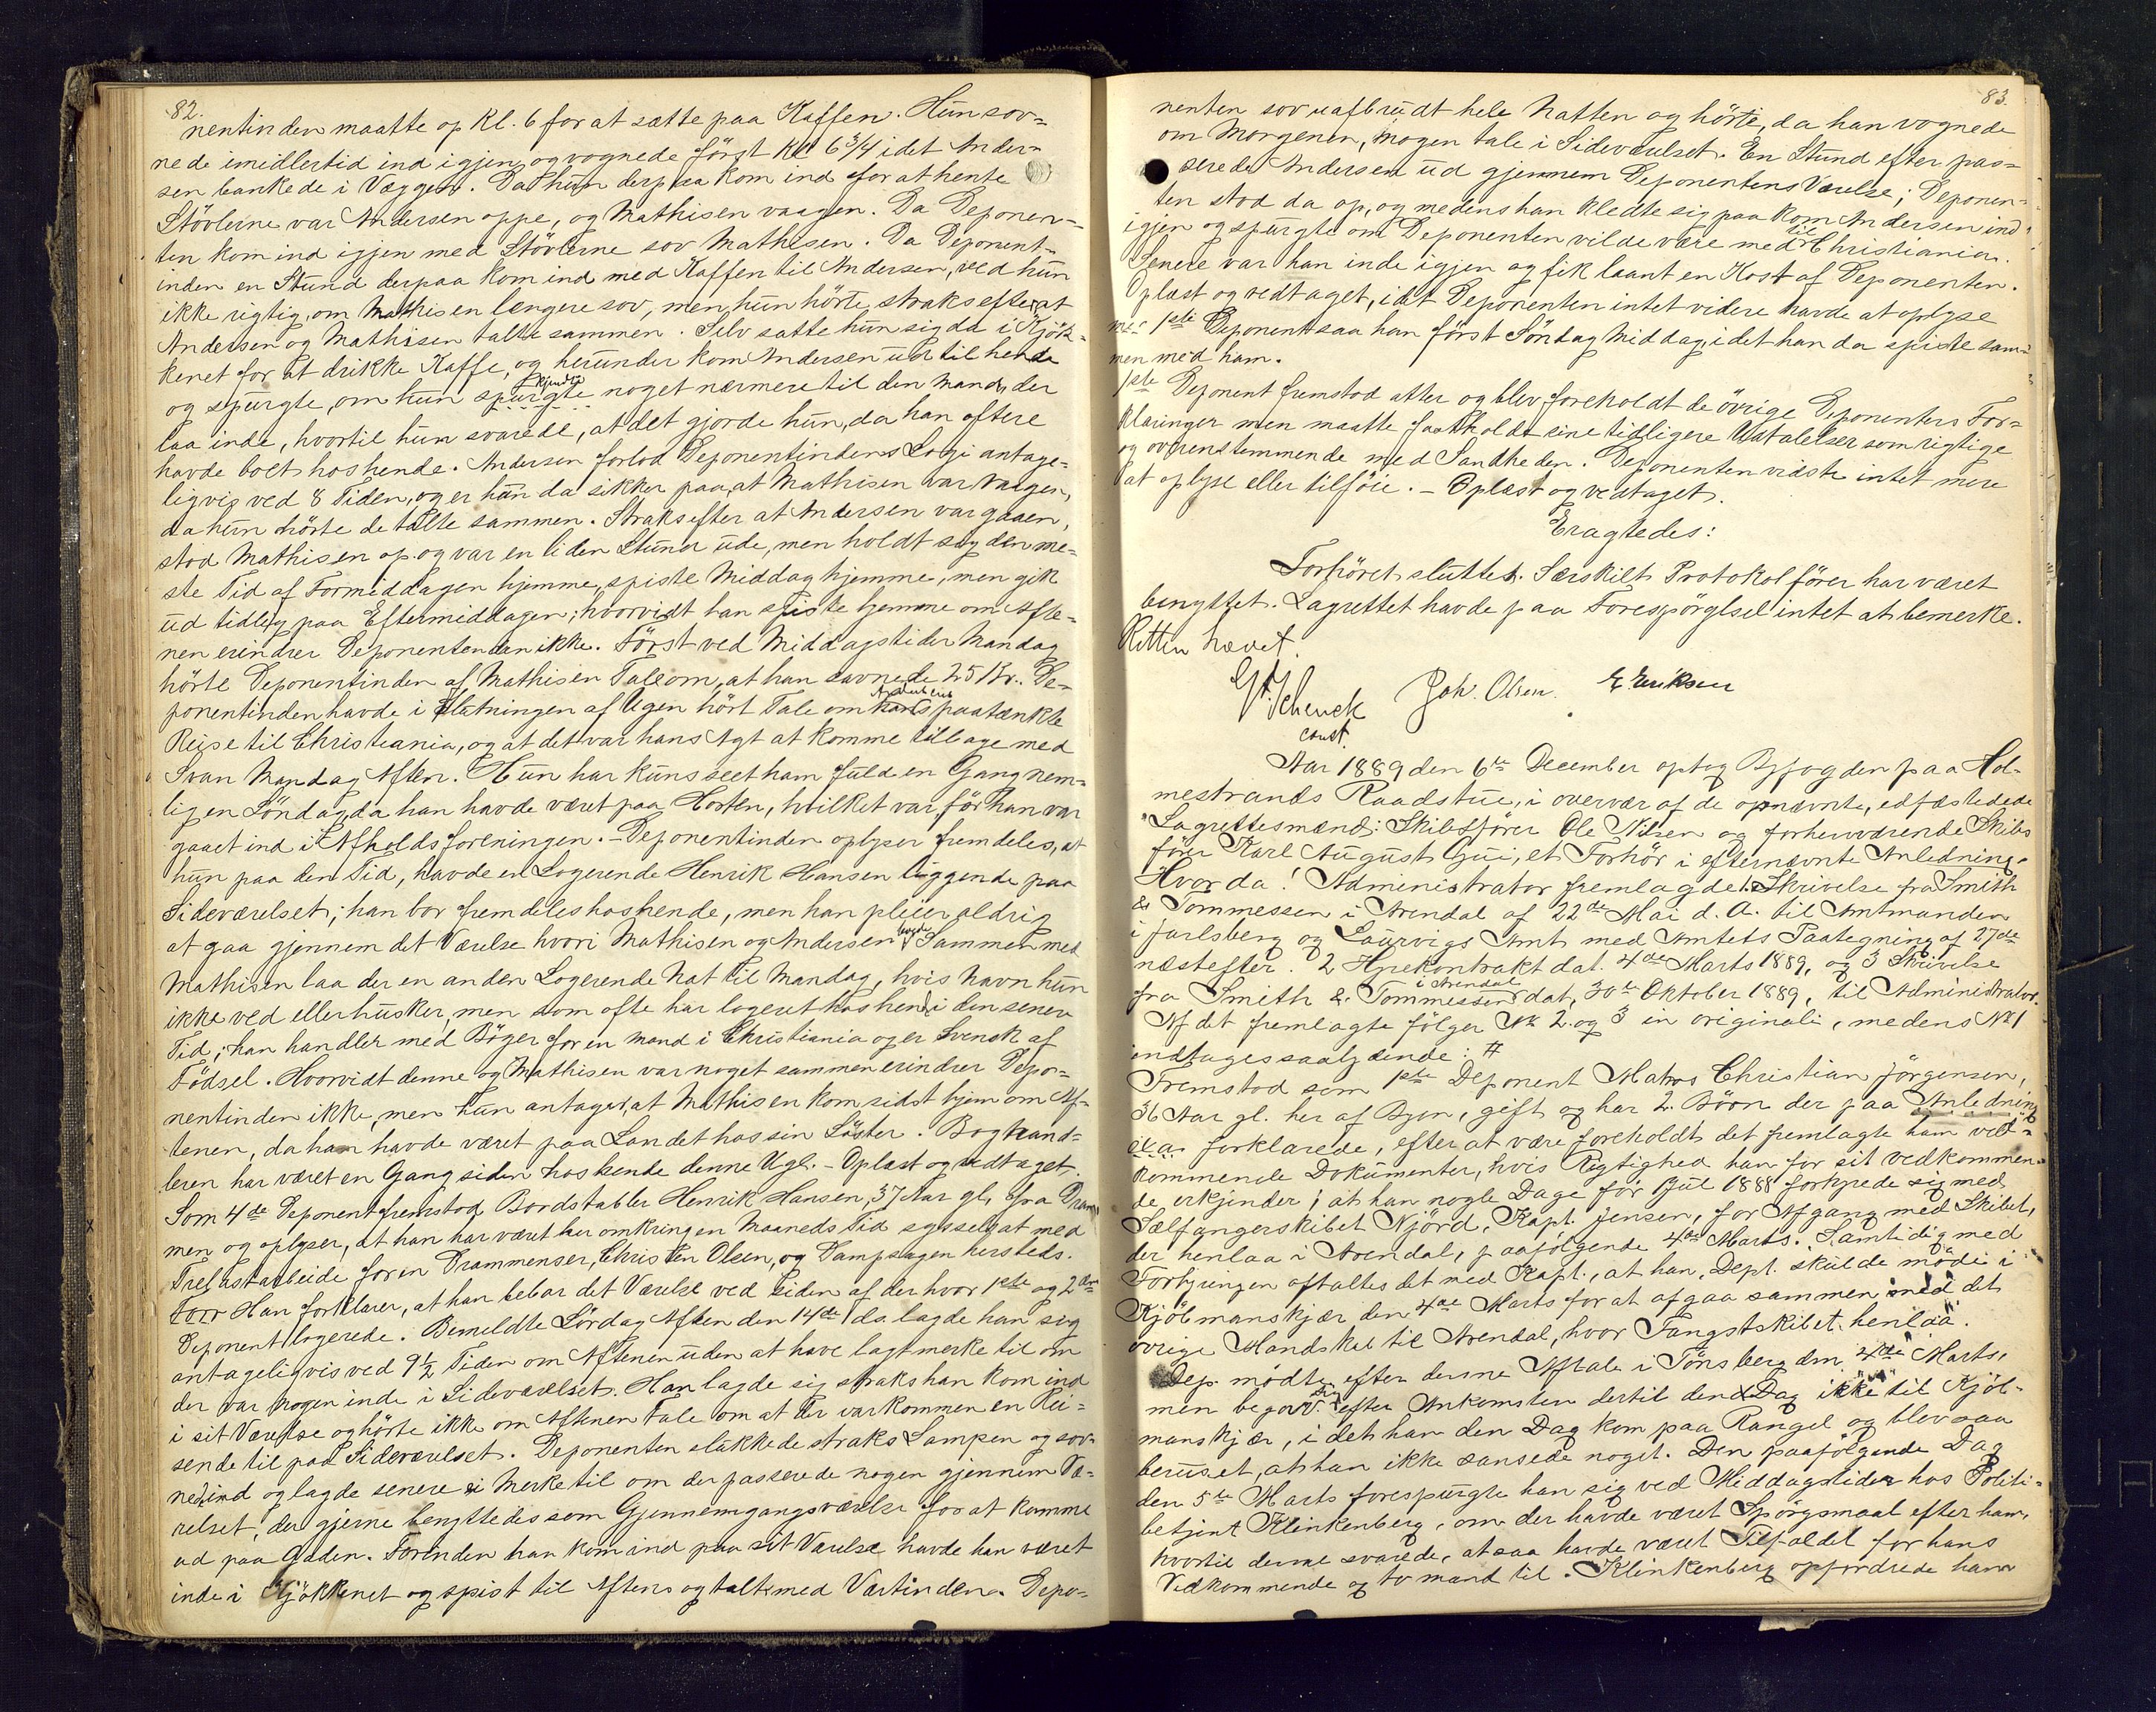 82.
nentinden maatte op kl. 6 for at sætte paa Kaffen. Hun sov=
nede imidlertid ind igjen og vognede först kl 6 3/4 idet Ander=
sen bankede i Væggen. Da hun derpaa kom ind for at hente
Stövlerne var Andersen oppe, og Mathisen vaagen. Da Deponen=
ten kom ind igjen med Stövlerne sov Mathisen. Da Deponent=
inden en Stund derpaa kom ind med Kaffen til Andersen, ved hun
ikke rigtig, om Mathisen længere sov, men hun hörte straks efter at
Andersen og Mathisen talte sammen. Selv satte hun sig da i Kjök=
kenet for at drikke Kaffe, og herunder kom Andersen ud til hende
og spurgte, om hun spurgte kjendte noget nærmere til den Mand, der
laa inde, hvortil hun svarede, at det gjorde hun, da han oftere
havde boet hos hende. Andersen forlod Deponentindens Logi antage=
ligvis ved 8 Tiden, og er hun da sikker paa, at Mathisen var vaagen,
da hun hörte de talte sammen. Straks efter at Andersen var gaaen,
stod Mathisen op og var en liden Stund ude, men holdt sig den me=
ste Tid af Formiddagen hjemme, spiste Middag hjemme, men gik
ud tidlig paa Eftermiddagen; hvorvidt han spiste hjemme om Afte=
nen erindrer Deponentinden ikke. Först ved Middagstider Mandag
hörte Deponentinden af Mathisen Tale om, at han savnede 25 Kr. De=
ponentinden havde i Slutningen af Ugen hört Tale om hans Andersens paatænkte
Reise til Christiania, og at det var hans Agt at komme tilbage med
Svan Mandag Aften. Hun har kuns seet ham fuld en Gang nem=
lig en Söndag, da han havde været paa Horten, hvilket var för han var
gaaet ind i Afholdsforeningen. – Deponentinden oplyser fremdeles, at
hun paa den Tid, havde en Logerende Henrik Hansen liggende paa
Sideværelset; han bor fremdeles hos hende, men han pleier aldrig
at gaa gjennem det Værelse hvori Mathisen og Andersen laade. Sammen med
Mathisen laa der en anden Logerende Nat til Mandag, hvis Navn hun
ikke ved eller husker, men som ofte har logeret hos hende i den senere
Tid; han handler med Böger for en Mand i Christiania og er Svensk af
Födsel. Hvorvidt denne og Mathisen var noget sammen erindrer Depo=
nentinden ikke, men hun antager, at Mathisen kom sidst hjem om Af=
tenen, da han havde været paa Landet hos sin Söster. Boghand=
leren har været en Gang siden hos hende denne Uge. – Oplæst og vedtaget.
Som 4de Deponent fremstod Bordstabler Henrik Hansen, 37 Aar gl, fra Dram=
men og oplyser, at han har været her omkring en Maaneds Tid sysselsat med
Trelastarbeide for en Drammenser, Christen Olsen, og Dampsagen hersteds.
Han forklarer, at han bebor det Værelse ved Siden af der hvor 1ste og 2den
Deponent logerede. Bemeldte Lördag Aften den 14de ds. lagde han sig
antageligvis ved 9½ Tiden om Aftenen uden at have lagt merke til om
der var nogen inde i Sideværelset. Han lagde sig straks han kom ind
i sit Værelse og hörte ikke om Aftenen Tale om at der var kommen en Rei=
sende til paa Sideværelset. Deponenten slukkede straks Lampen og sov=
ned ind og lagde senere ei Merke til om der passerede nogen gjennem Væ=
relset, der gjerne benyttedes som Gjennemgangsværelse for at komme
ud paa Gaden. Forenden han kom ind paa sit Værelse havde han været
inde i Kjökkenet og spist til Aftens og talt med Værtinden. Depo=
83.
nenten sov uafbrudt hele Natten og hörte, da han vognede
om Morgenen, nogen tale i Sideværelset. En Stund efter pas=
serede Andersen ud gjennem Deponentens Værelse; Deponen=
ten stod da op, og medens han klædte sig paa kom Andersen ind
igjen og spurgte om Deponenten vilde være med til Christiania.
Senere var han inde igjen og fik laant en Kost af Deponenten.
Oplæst og vedtaget, idet Deponenten intet videre havde at oplyse
1ste Deponent saa han först Söndag Middag, idet han da spiste sam=
men med ham.
1ste Deponent fremstod atter og blev foreholdt de övrige Deponenters For=
klaringer men maatte fastholde sine tidligere Udtalelser som rigtige
og overenstemmende med Sandheden. Deponenten vidste intet mere
at oplyse eller tilföie. – Oplæst og vedtaget.
Eragtedes:
Forhöret sluttet. Særskilt Protokolförer har været
benyttet. Lagrettet havde paa Forespörgsel intet at bemerke.
Retten hævet.
Schenck Joh. Olsen. E. Eriksen
const.
Aar 1889 den 6te December optog Byfogden paa Hol=
mestrands Raadstue, i overvær af de opnævnte, edfæstedede
Lagrettesmænd: Skibsförer Ole Nilsen og forhenværende Skibs
förer Karl August Gui, et Forhör i efternævnte Anledning.
Hvorda! Administrator fremlagde 1 Skrivelse fra Smith
& Tommessen i Arendal af 22de Mai d. A. til Amtmanden
i Jarlsberg og Laurvigs Amt med Amtets Paategning af 27de
næstefter. 2 Hyrekontrakt dat. 4de Marts 1889, og 3 Skrivelse
fra Smith & Tommessen i Arendal dat. 30te Oktober 1889, til Administrator.
Af det fremlagte fölger No 2 og 3 in originali, medens No 1
indtages saalydende: #
Fremstod som 1ste Deponent Matros Christian Jörgensen,
36 Aar gl. her af Byen, gift og har 2 Börn der paa Anledning
forklarede, efter at være foreholdt det fremlagte ham ved=
kommende Dokumenter, hvis Rigtighed han for sit vedkommen=
de erkjender, at han nogle Dage för Jul 1888 forhyrede sig med
Sælfangerskibet Njörd, Kapt. Jensen, for Afgang med Skibet,
der henlaa i Arendal, paafölgende 4de Marts. Samtidig med
Forhyringen aftaltes det med Kapt., at han, Dept. skulde möde i
Kjöbmanskjær den 4de Marts for at afgaa sammen med det
övrige Mandskab til Arendal, hvor Fangstskibet henlaa.
Dep. mödte efter denne Aftale i Tönsberg den 4de Marts,
men begav sig efter Ankomsten dertil den Dag ikke til Kjöb=
manskjær, idet han den Dag kom paa Rangel og blev saa
beruset, at han ikke sansede noget. Den paafölgende Dag
den 5te Marts forespurgte han sig ved Middagstider hos Politi=
betjent Klinkenberg, om der havde været Spörgsmaal efter ham,
hvortil denne svarede, at saa havde været Tilfældet for hans
Vedkommende og to mand til. Klinkenberg opfordrede ham